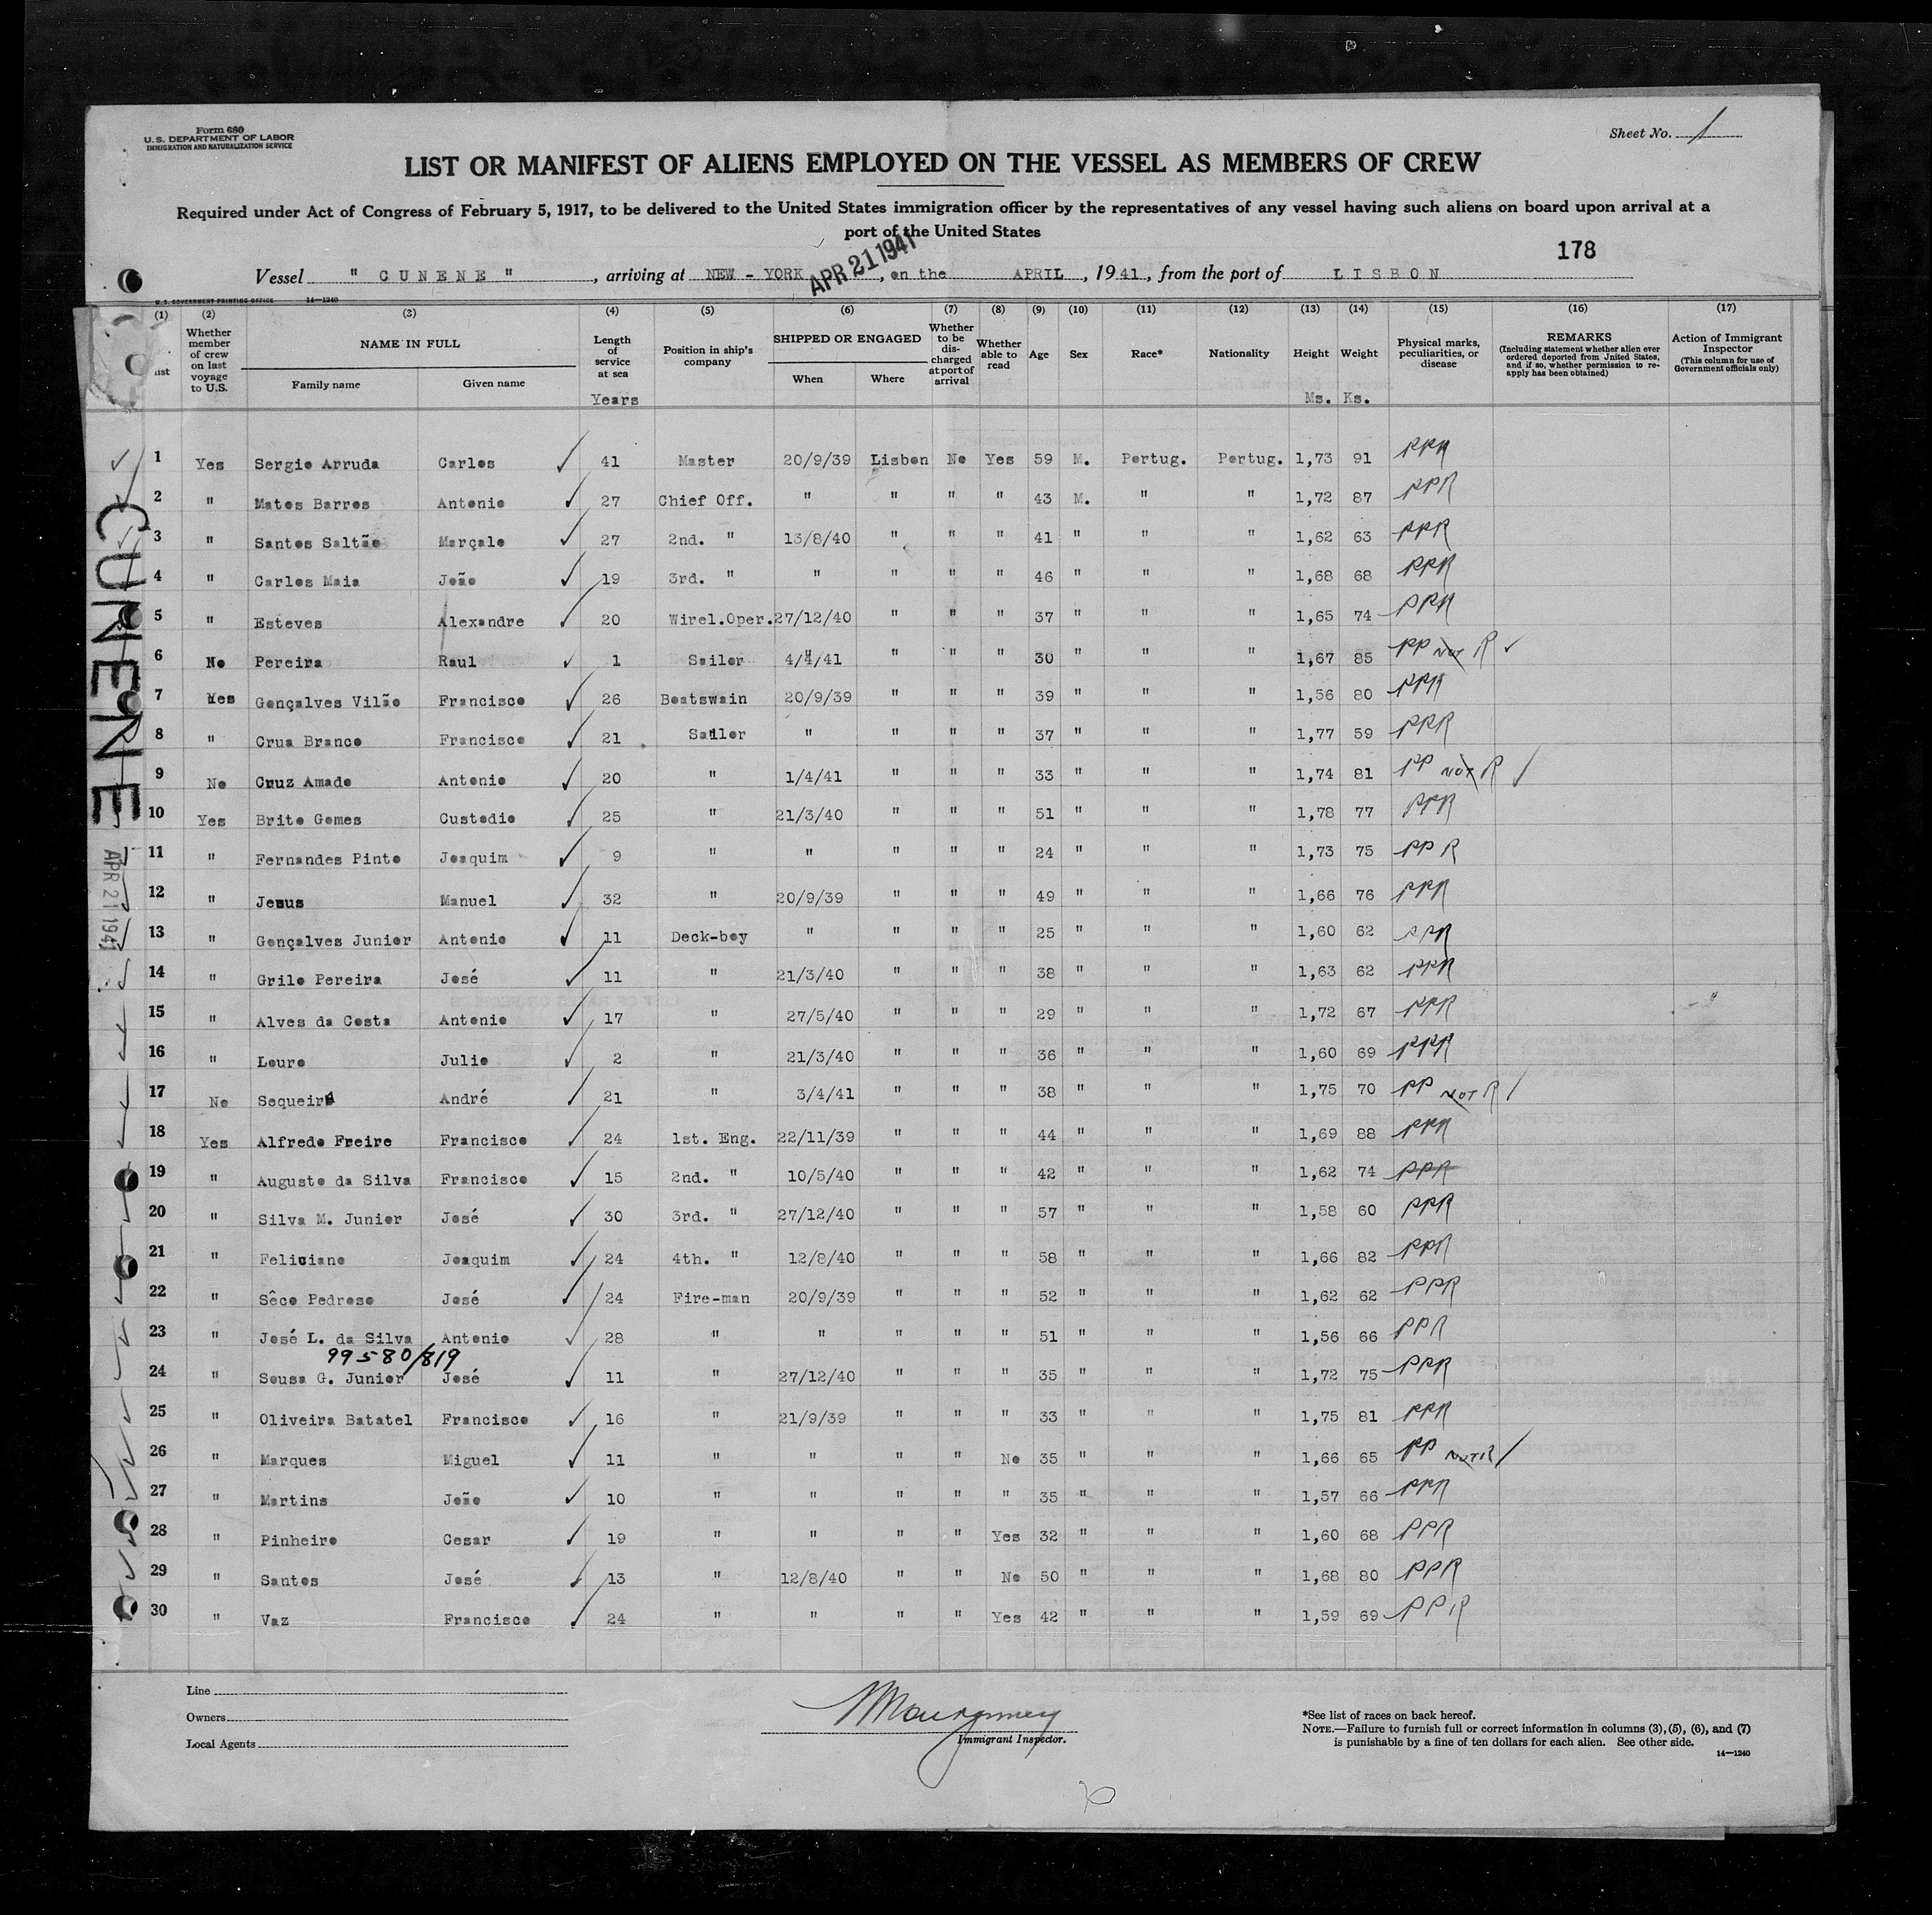 Form 680
U.S. DEPARTMENT OF LABOR
IMMIGRATION AND NATURALIZATION SERVICE
Sheet No. 1
LIST OR MANIFEST OF ALIENS EMPLOYED ON THE VESSEL AS MEMBERS OF CREW
Required under Act of Congress of February 5, 1917, to be delivered to the United States immigration officer by the representatives of any vessel having such aliens on board upon arrival at a
port of the United States
APR 21 1941
178
Vessel " CUNENE " , arriving at NEW - YORK , on the APRIL , 1941, from the port of LISBON
U.S. GOVERNMENT PRINTING OFFICE 14—1240
(1) (2) (3) (4) (5) (6) (7) (8) (9) (10) (11) (12) (13) (14) (15) (16) (17)
Whether member of crew on last voyage to U.S.
NAME IN FULL
Family name Given name
Length of service at sea
Years
Position in ship's company
SHIPPED OR ENGAGED
When Where
Whether to be discharged at port of arrival
Whether able to read
Age
Sex
Race*
Nationality
Height Ms.
Weight Ks.
Physical marks, peculiarities, or disease
REMARKS
(Including statement whether alien ever ordered deported from United States, and if so, whether permission to reapply has been obtained)
Action of Immigrant Inspector
(This column for use of Government officials only)
CUNENE
APR 21 1941
1 Yes Sergio Arruda Carlos 41 Master 20/9/39 Lisbon No Yes 59 M. Portug. Portug. 1,73 91 PPR
2 " Matos Barros Antonio 27 Chief Off. " " " " 43 M. " " 1,72 87 PPR
3 " Santos Saltão Marçalo 27 2nd. " 13/8/40 " " " 41 " " " 1,62 63 PPR
4 " Carlos Maia João 19 3rd. " " " " " 46 " " " 1,68 68 PPR
5 " Esteves Alexandre 20 Wirel.Oper. 27/12/40 " " " 37 " " " 1,65 74 PPR
6 No Pereira Raul 1 Sailor 4/4/41 " " " 30 " " " 1,67 85 PP NOT R
7 Yes Gonçalves Vilão Francisco 26 Boatswain 20/9/39 " " " 39 " " " 1,56 80 PPR
8 " Crua Branco Francisco 21 Sailor " " " " 37 " " " 1,77 59 PPR
9 No Cruz Amado Antonio 20 " 1/4/41 " " " 33 " " " 1,74 81 PP NOT R
10 Yes Brito Gomes Custodio 25 " 21/3/40 " " " 51 " " " 1,78 77 PPR
11 " Fernandes Pinto Joaquim 9 " " " " " 24 " " " 1,73 75 PPR
12 " Jesus Manuel 32 " 20/9/39 " " " 49 " " " 1,66 76 PPR
13 " Gonçalves Junior Antonio 11 Deck-boy " " " " 25 " " " 1,60 62 PPR
14 " Grilo Pereira José 11 " 21/3/40 " " " 38 " " " 1,63 62 PPR
15 " Alves da Costa Antonio 17 " 27/5/40 " " " 29 " " " 1,72 67 PPR
16 " Louro Julio 2 " 21/3/40 " " " 36 " " " 1,60 69 PPR
17 No Sequeira André 21 " 3/4/41 " " " 38 " " " 1,75 70 PP NOT R
18 Yes Alfredo Freire Francisco 24 1st. Eng. 22/11/39 " " " 44 " " " 1,69 88 PPR
19 " Augusto da Silva Francisco 15 2nd. " 10/5/40 " " " 42 " " " 1,62 74 PPR
20 " Silva M. Junior José 30 3rd. " 27/12/40 " " " 57 " " " 1,58 60 PPR
21 " Feliciano Joaquim 24 4th. " 12/8/40 " " " 58 " " " 1,66 82 PPR
22 " Sêco Pedroso José 24 Fire-man 20/9/39 " " " 52 " " " 1,62 62 PPR
23 " José L. da Silva Antonio 28 " " " " " 51 " " " 1,56 66 PPR
99580/819
24 " Sousa G. Junior José 11 " 27/12/40 " " " 35 " " " 1,72 75 PPR
25 " Oliveira Batatel Francisco 16 " 21/9/39 " " " 33 " " " 1,75 81 PPR
26 " Marques Miguel 11 " " " " No 35 " " " 1,66 65 PP NOT R
27 " Martins João 10 " " " " " 35 " " " 1,57 66 PPR
28 " Pinheiro Cesar 19 " " " " Yes 32 " " " 1,60 68 PPR
29 " Santos José 13 " 12/8/40 " " No 50 " " " 1,68 80 PPR
30 " Vaz Francisco 24 " " " " Yes 42 " " " 1,59 69 PPR
Line
Owners
Local Agents
Immigrant Inspector.
*See list of races on back hereof.
NOTE.—Failure to furnish full or correct information in columns (3), (5), (6), and (7)
is punishable by a fine of ten dollars for each alien. See other side.
14—1240